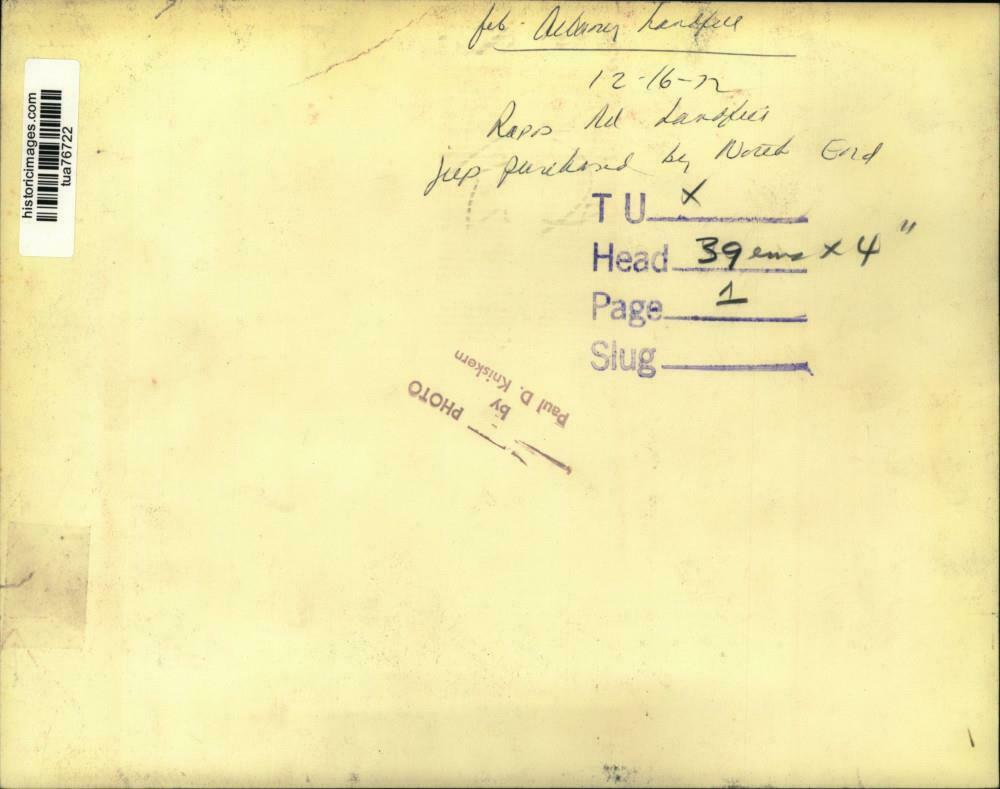 Albany Landfill
12-16-72
Rapp Rd Landfill
jeep purchased by North End
T U X
Head 39 ems x 4"
Page 1
Slug
PHOTO
by
Paul D. Kniskern
historicimages.com
tua76722